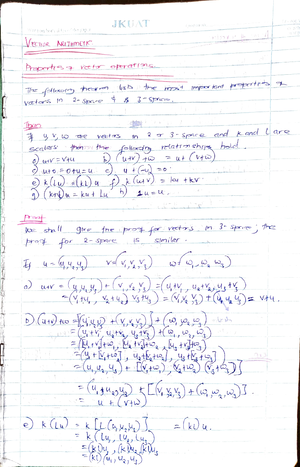 JKUAT
VECTOR ANALYSIS
Properties of vector operations
The following theorem lists the most important properties of
vectors in 2-space & 3-space.
If u, v, w are vectors in 2 or 3-space and k and l are
scalars then the following relationships hold.
a) u+v = v+u b) (u+v)+w = u+(v+w)
c) u+0 = 0+u = u d) u+(-u) = 0
e) k(lu) = (kl)u f) k(u+v) = ku+kv
g) (k+l)u = ku+lu h) 1u = u.
Proof
We shall give the proof for vectors in 3-space; the
proof for 2-space is similar.
If u = (u₁,u₂,u₃) v = (v₁,v₂,v₃) w = (w₁,w₂,w₃)
a) u+v = (u₁,u₂,u₃) + (v₁,v₂,v₃) = (u₁+v₁, u₂+v₂, u₃+v₃)
= (v₁+u₁, v₂+u₂, v₃+u₃) = (v₁,v₂,v₃) + (u₁,u₂,u₃) = v+u.
b) (u+v)+w = [(u₁,u₂,u₃) + (v₁,v₂,v₃)] + (w₁,w₂,w₃)
= (u₁+v₁, u₂+v₂, u₃+v₃) + (w₁,w₂,w₃)
= ([u₁+v₁]+w₁, [u₂+v₂]+w₂, [u₃+v₃]+w₃)
= (u₁+[v₁+w₁], u₂+[v₂+w₂], u₃+[v₃+w₃])
= (u₁,u₂,u₃) + [(v₁,v₂,v₃) + (w₁,w₂,w₃)]
= u + (v+w)
e) k(lu) = k[l(u₁,u₂,u₃)] = (kl)u.
= k(lu₁, lu₂, lu₃)
= (kl)u₁, (kl)u₂, (kl)u₃
= (kl)(u₁,u₂,u₃)